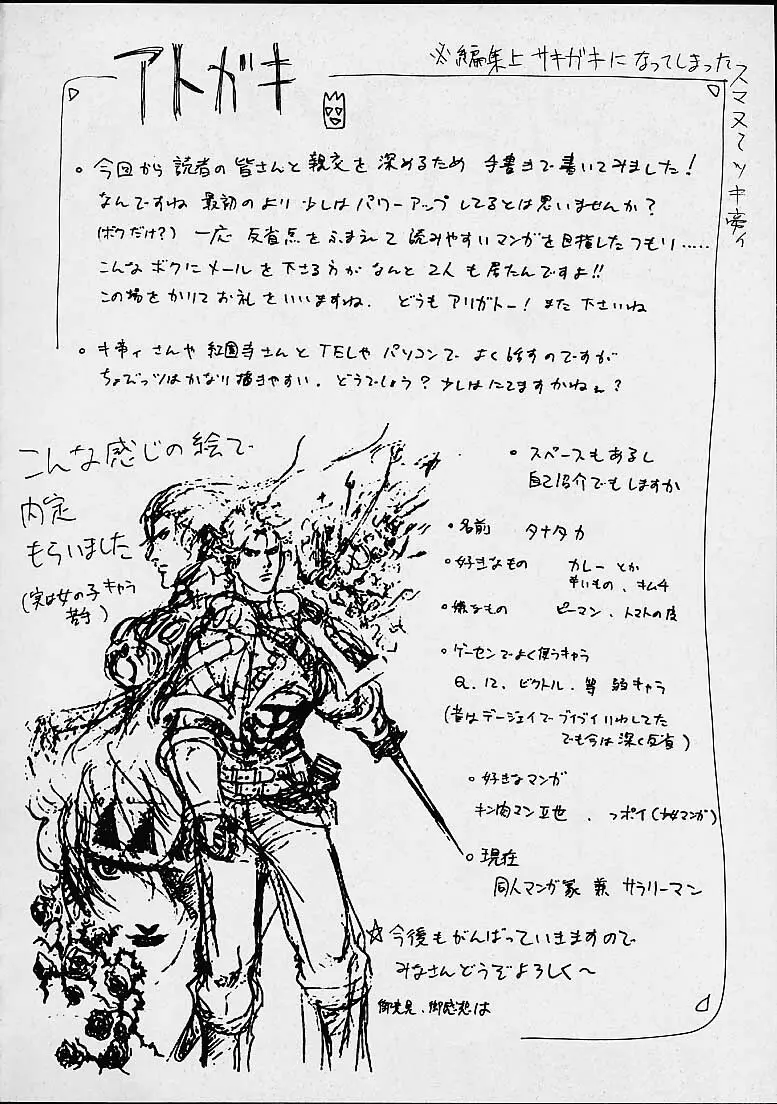 アトガキ
※編集上 サキガキになってしまった
スマヌでツ キ帝ィ
。今回から 読者の皆さんと親交を深めるため 手書きで書いてみました!
なんですね 最初のより 少しは パワーアップ してるとは思いませんか?
(ボクだけ?) 一応 反省点をふまえて 読みやすいマンガを目指したつもり.....
こんなボクにメールを下さる方がなんと2人も居たんですよ!!
この場をかりてお礼をいいますね. どうもアリガトー! また下さいね
。キ帝ィさんや紅国寺さんとTELしやパソコンでよく話すのですが
ちょびっツはかなり描きやすい. どうでしょう? 少しはにてますかねぇ?
こんな感じの絵で
内定
もらいました
(実は女の子キャラ
苦手)
。スペースもあるし
自己紹介でもしますか
。名前 タナタカ
。好きなもの カレーとか
辛いもの、キムチ
。嫌なもの ピーマン、トマトの皮
。ゲーセンでよく使うキャラ
Q.12.ビクトル.等 弱キャラ
(昔はデージェイでブイブイいわしてた
でも今は深く反省)
。好きなマンガ
キン肉マンⅡ世 、っポイ(少女マンガ)
。現在
同人マンガ家 兼 サラリーマン
☆今後もがんばっていきますので
みなさんどうぞよろしく〜
御意見、御感想は